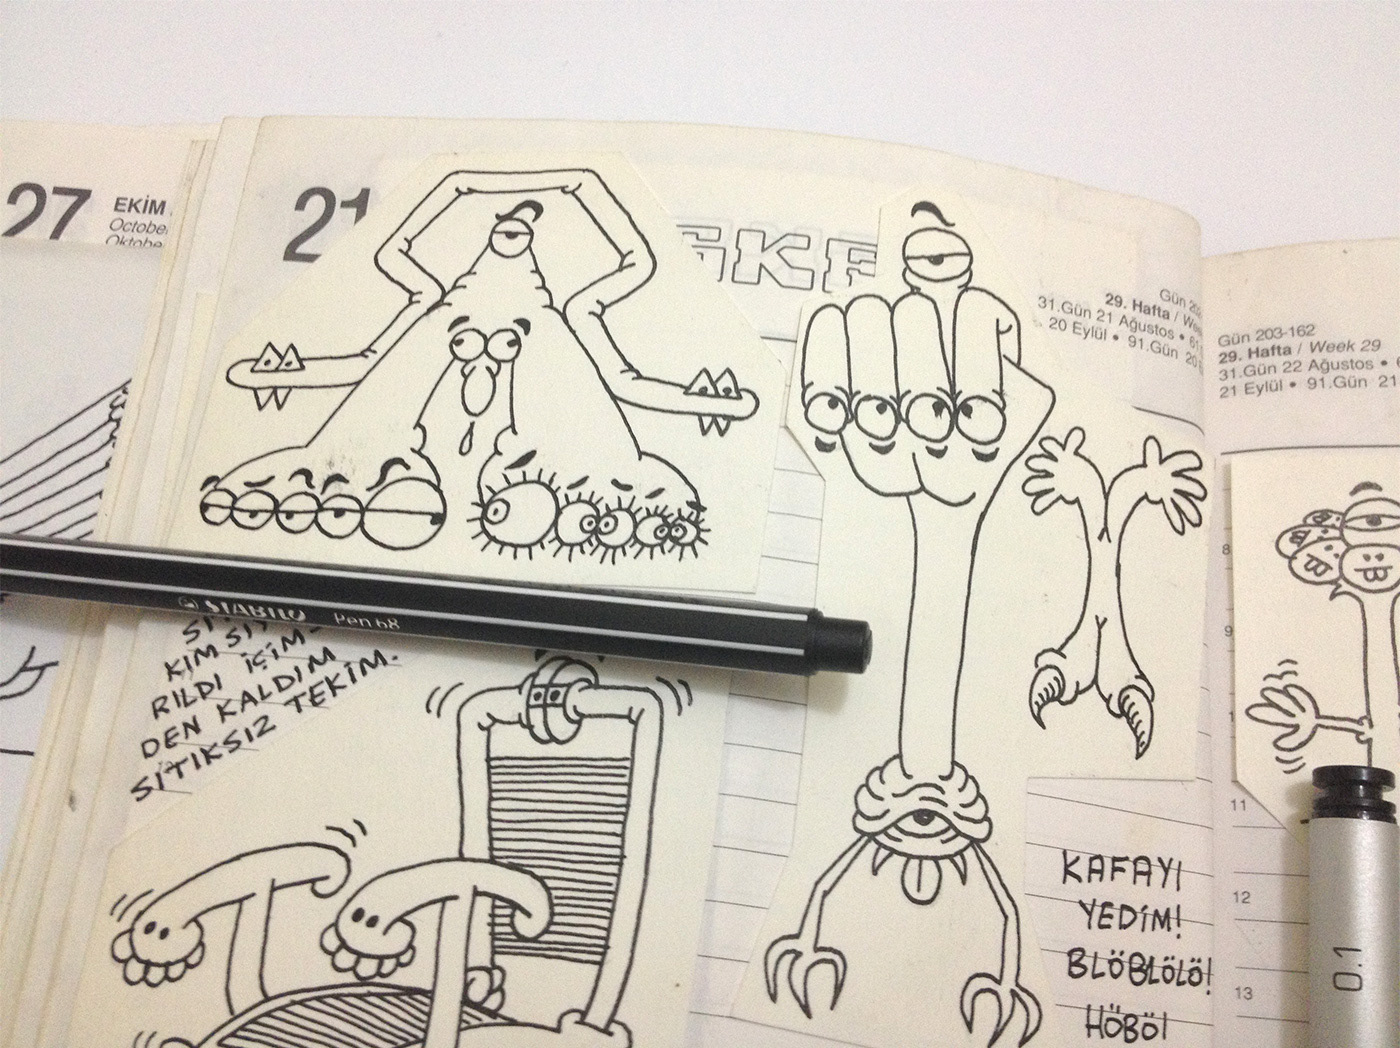 27
EKİM
October
Oktober
21
29. Hafta / Week
31.Gün 21 Ağustos • 61
20 Eylül • 91.Gün 20
Gün 203-162
29. Hafta / Week 29
31.Gün 22 Ağustos •
21 Eylül • 91.Gün 21
STABILO Pen 68
KIM SIY
RILDI İÇİM-
DEN KALDIM
SITIKSIZ TEKİM.
8
9
11
12
13
KAFAYI
YEDİM!
BLÖBLÖLÖ!
HÖBÖ!
0.1